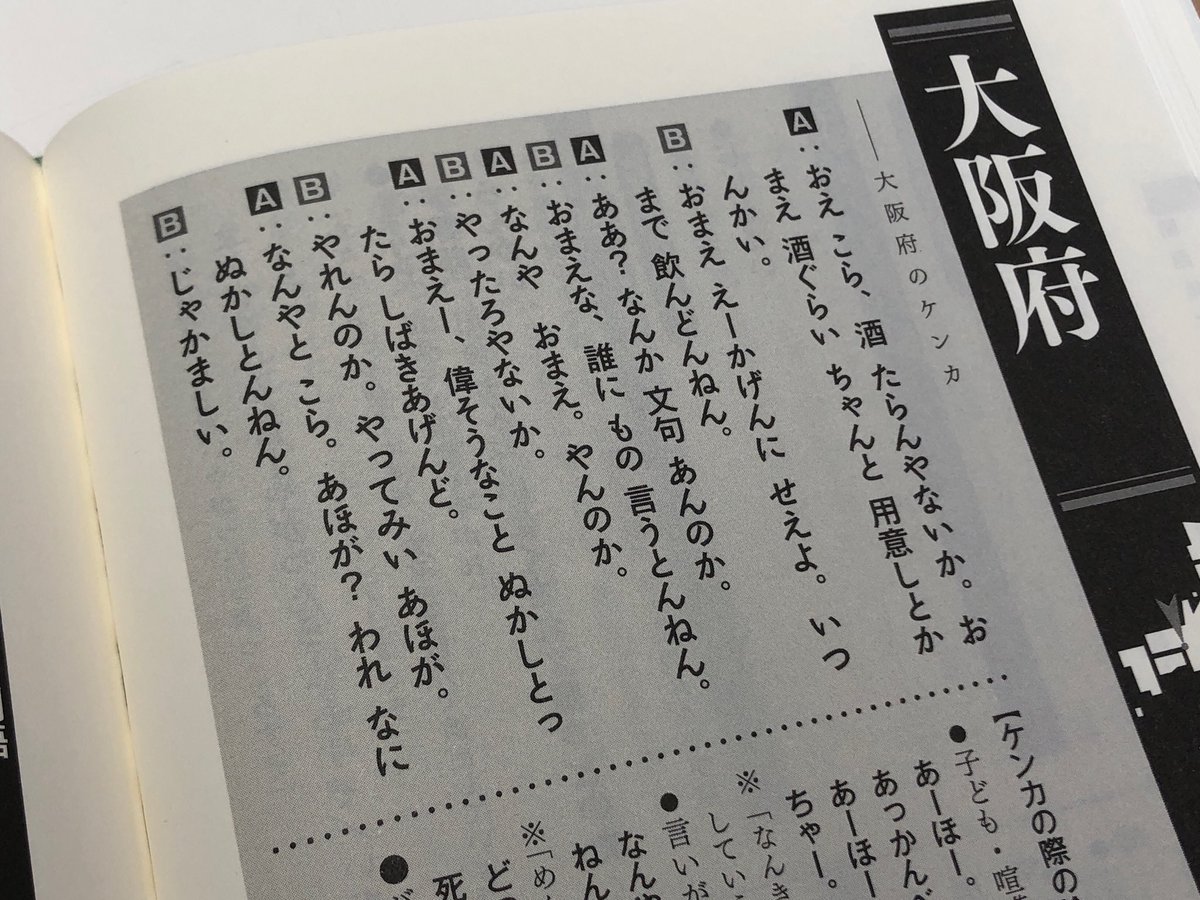 大阪府
――大阪府のケンカ
A：おえ こら、酒 たらんやないか。お
まえ 酒ぐらい ちゃんと 用意しとか
んかい。
B：おまえ えーかげんに せえよ。いつ
まで 飲んどんねん。
A：ああ？ なんか 文句 あんのか。
B：おまえな、誰に もの 言うとんねん。
A：なんや おまえ。やんのか。
B：やったろやないか。
A：おまえー、偉そうなこと ぬかしとっ
たら しばきあげんど。
B：やれんのか。やってみい あほが。
A：なんやと こら。あほが？ われ なに
ぬかしとんねん。
B：じゃかましい。
【ケンカの際の
●子ども・喧
あーほー。
あっかんべ
あーほー
ちゃー。
※「なんき
してい
●言いが
なんや
ねん
※「め
ど
死
●